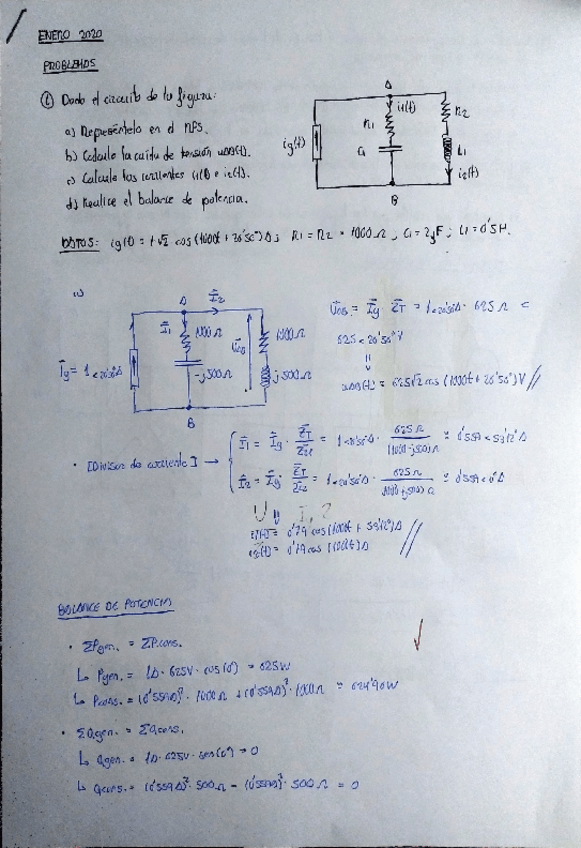 ENERO 2020
PROBLEMAS
① Dado el circuito de la figura:
a) Represéntelo en el RPS.
b) Calcule la caída de tensión uAB(t).
c) Calcule las corrientes i1(t) e i2(t).
d) Realice el balance de potencia.
ig(t)
A
i1(t)
R1
C1
R2
L1
i2(t)
B
DATOS: ig(t) = 1√2 cos(1000t + 26'56°)A ; R1 = R2 = 1000Ω ; C1 = 2μF ; L1 = 0'5H.
A
I2
I1
1000Ω
-j500Ω
UAB
1000Ω
j500Ω
B
UAB = Ig · ZT = 1<26'56°A · 625Ω =
625<26'56°V
⇓
uAB(t) = 625√2 cos(1000t + 26'56°)V //
• [Divisor de corriente] →
I1 = Ig · ZT/Z1 = 1<26'56°A · 625Ω/(1000-j500)Ω = 0'559<53'12°A
I2 = Ig · ZT/Z2 = 1<26'56°A · 625Ω/(1000+j500)Ω = 0'559<0°A
i1(t) = 0'79 cos(1000t + 53'12°)A
i2(t) = 0'79 cos(1000t)A //
BALANCE DE POTENCIA
• ΣPgen. = ΣPcons.
↳ Pgen. = 1A · 625V · cos(0°) = 625W
↳ Pcons. = (0'559A)² · 1000Ω + (0'559A)² · 1000Ω = 624'96W
• ΣQgen. = ΣQcons.
↳ Qgen. = 1A · 625V · sen(0°) = 0
↳ Qcons. = (0'559A)² · 500Ω - (0'559A)² · 500Ω = 0